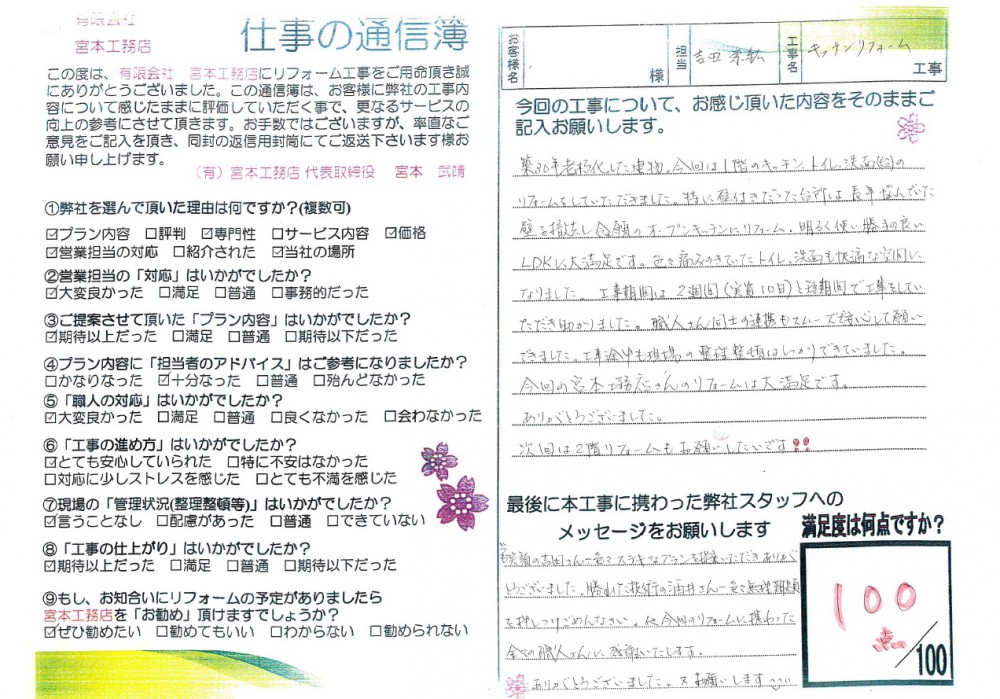 有限会社
宮本工務店
仕事の通信簿
この度は、有限会社 宮本工務店にリフォーム工事をご用命頂き誠
にありがとうございました。この通信簿は、お客様に弊社の工事内
容について感じたままに評価していただく事で、更なるサービスの
向上の参考にさせて頂きます。お手数ではございますが、率直なご
意見をご記入を頂き、同封の返信用封筒にてご返送下さいます様お
願い申し上げます。
(有)宮本工務店 代表取締役 宮本 武靖
①弊社を選んで頂いた理由は何ですか?(複数可)
☑プラン内容 □評判 ☑専門性 □サービス内容 ☑価格
☑営業担当の対応 □紹介された ☑当社の場所
②営業担当の「対応」はいかがでしたか?
☑大変良かった □満足 □普通 □事務的だった
③ご提案させて頂いた「プラン内容」はいかがでしたか?
☑期待以上だった □満足 □普通 □期待以下だった
④プラン内容に「担当者のアドバイス」はご参考になりましたか?
□かなりなった ☑十分なった □普通 □殆んどなかった
⑤「職人の対応」はいかがでしたか?
☑大変良かった □満足 □普通 □良くなかった □会わなかった
⑥「工事の進め方」はいかがでしたか?
☑とても安心していられた □特に不安はなかった
□対応に少しストレスを感じた □とても不満を感じた
⑦現場の「管理状況(整理整頓等)」はいかがでしたか?
☑言うことなし □配慮があった □普通 □できていない
⑧「工事の仕上がり」はいかがでしたか?
☑期待以上だった □満足 □普通 □期待以下だった
⑨もし、お知合いにリフォームの予定がありましたら
宮本工務店を「お勧め」頂けますでしょうか?
☑ぜひ勧めたい □勧めてもいい □わからない □勧められない
お客様名 様 担当 吉田 工事名 キッチンリフォーム 工事
今回の工事について、お感じ頂いた内容をそのままご
記入お願いします。
築30年老朽化した建物。今回は1階のキッチン、トイレ、洗面の
リフォームをしていただきました。特に壁付きだった台所は長年悩んでいた
壁を撤去し念願のオープンキッチンにリフォーム。明るく使い勝手の良い
LDKに大満足です。色々痛みのきていたトイレ、洗面も快適な空間に
なりました。工事期間は2週間(実質10日)と短期間で工事をしてい
ただき助かりました。職人さん同士の連携もスムーズで安心して願い
できました。工事途中も現場の整理整頓はしっかりできていました。
今回の宮本工務店さんのリフォームは大満足です。
ありがとうございました。
次回は2階リフォームもお願いしたいです!!
最後に本工事に携わった弊社スタッフへの
メッセージをお願いします
笑顔の吉田さん、色々ステキなプランを提案いただきありがと
うございました。勝れた技術の酒井さん、色々無理難題
を押しつけごめんなさい。他今回のリフォームに携わった
全ての職人さんに感謝いたします。
ありがとうございました。又お願いします
満足度は何点ですか?
100点/100